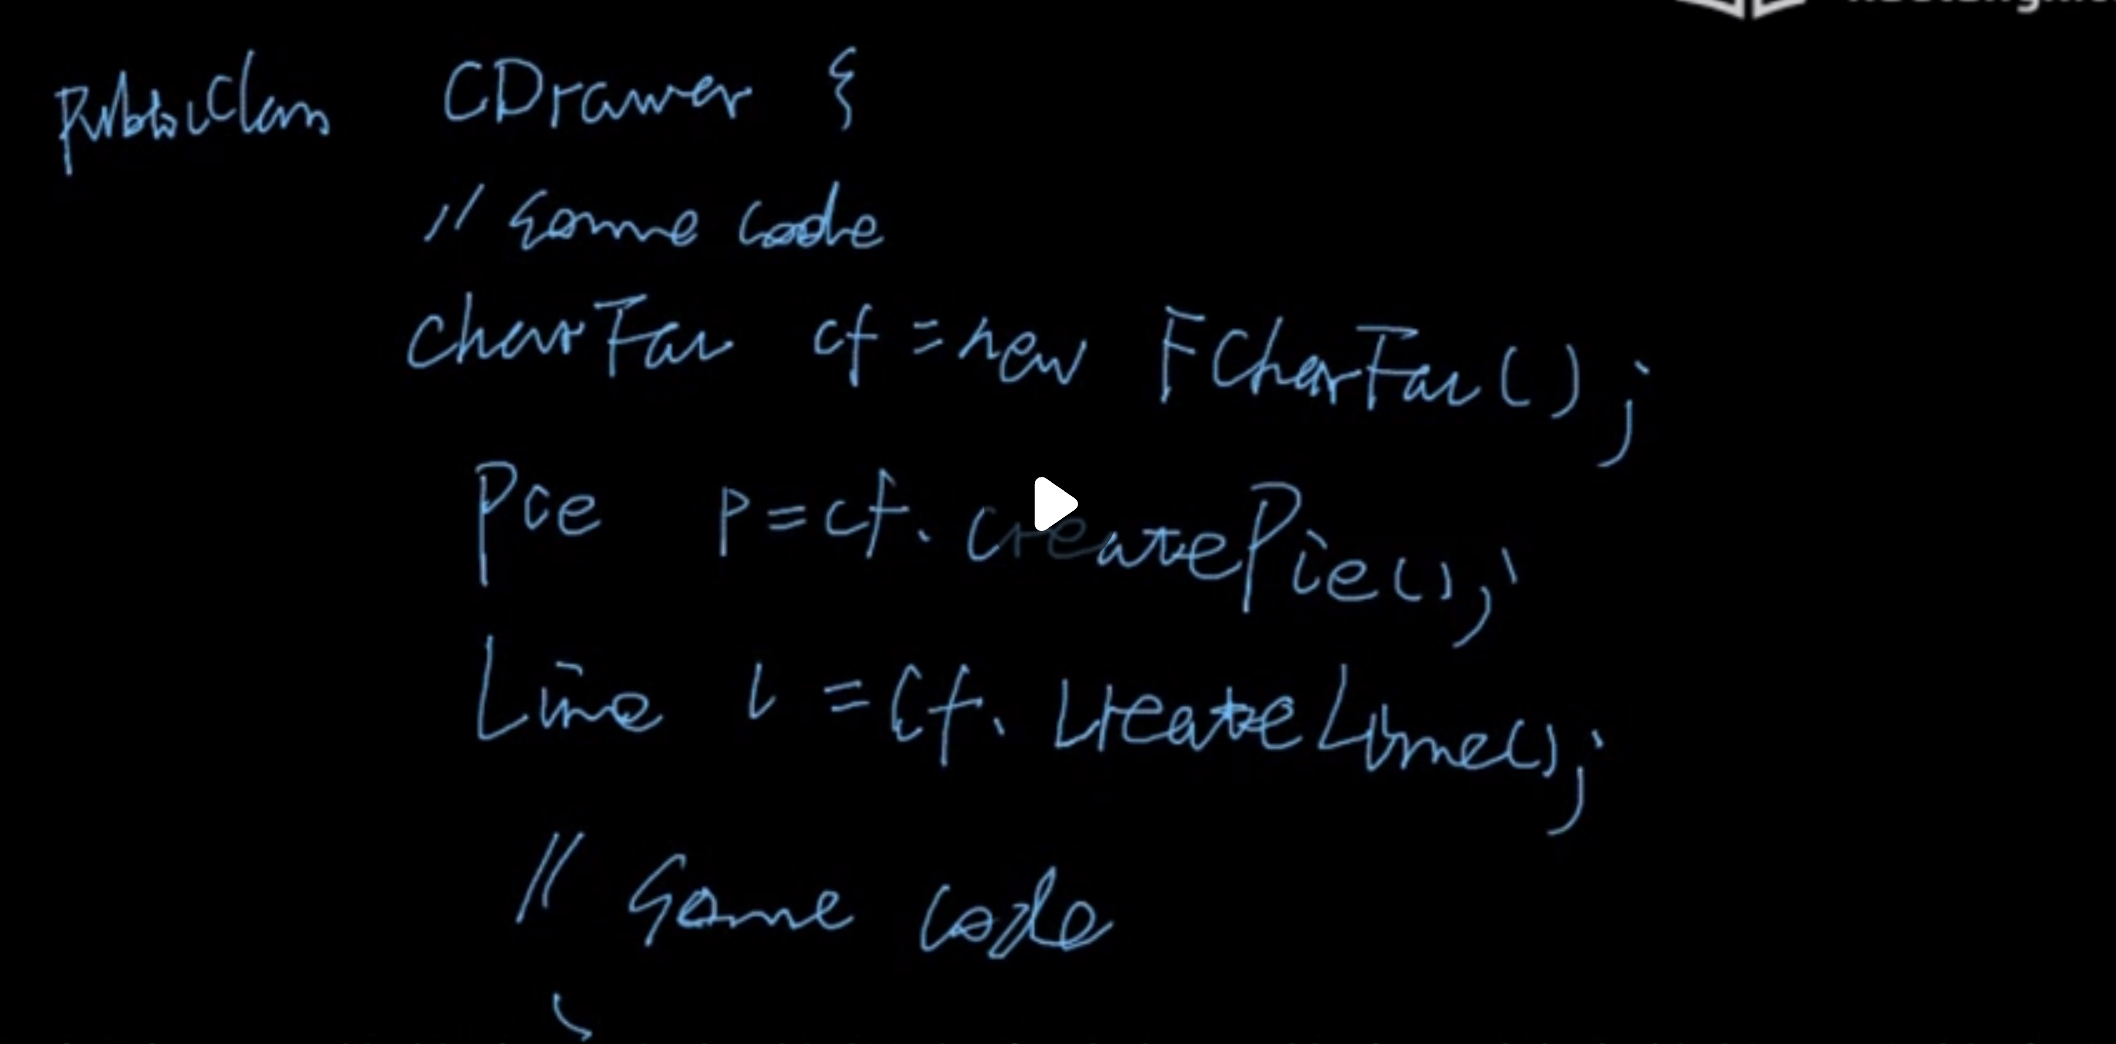 public class CDrawer {
// some code
charFac cf = new FCharFac();
Pie p = cf.createPie();
Line l = cf.createLine();
// some code